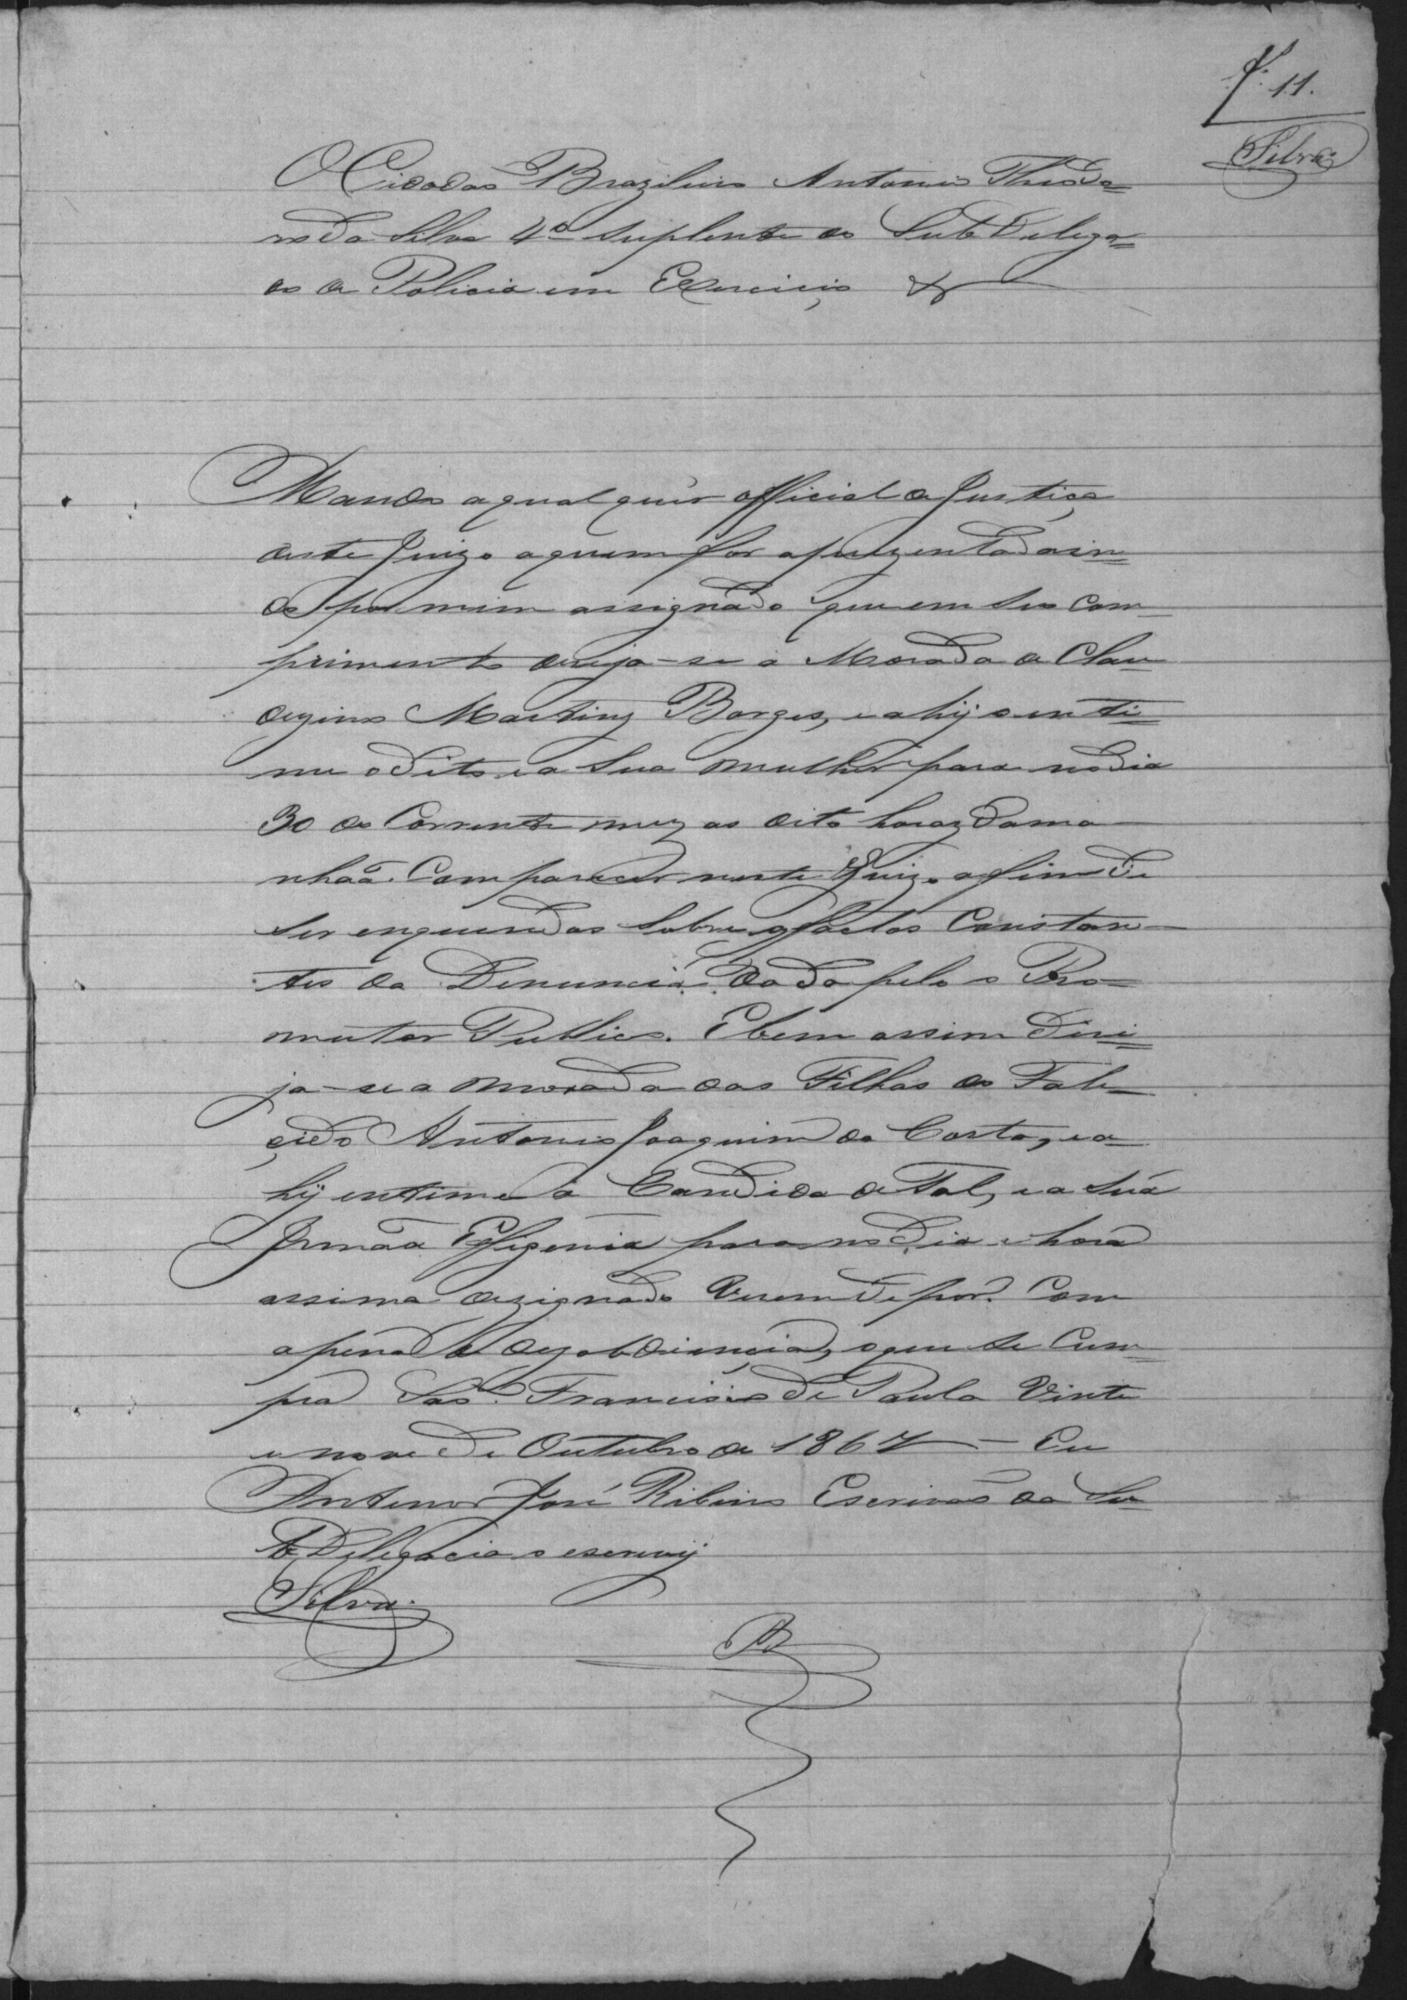 f. 11.
Silva
O Cidadaõ Brazileiro Antonio Theodo=
ro da Silva 4º suplente do SubDelega=
do de Policia em Exercicio &
Mando a qual quér official de Justiça
deste Juizo a quem for aprezentado in=
do por mim assignado que em seu com-
primento derija-se a Morada de Clau=
dezino Martinz Borges, e ahÿ o enti=
me o dito e a sua mulhér para no dia
30 do Corrente mez as oito horaz da ma
nhaã. Comparecer neste Juizo afim de
ser enqueridos sobre os factos Constan-
tes da Denuncia dada pelo o Pro=
mutor Publico. E bem assim diri=
ja-se a morada das Filhas do Fale-
çido Antonio Joaquim da Costa, e a-
hÿ entime a Candida de Tal, e a súa
Jrmãa Effigenia para no dia e hora
assima dezignado virem depor. Com
a pena de dezobdiençia, o que se Cum-
pra Saõ Francisco de Paula Vinte
e nove de Outubro de 1867 - Eu
Antenor José Ribeiro Escrivaõ da Su
bDelegacia o escrevÿ
Silva.